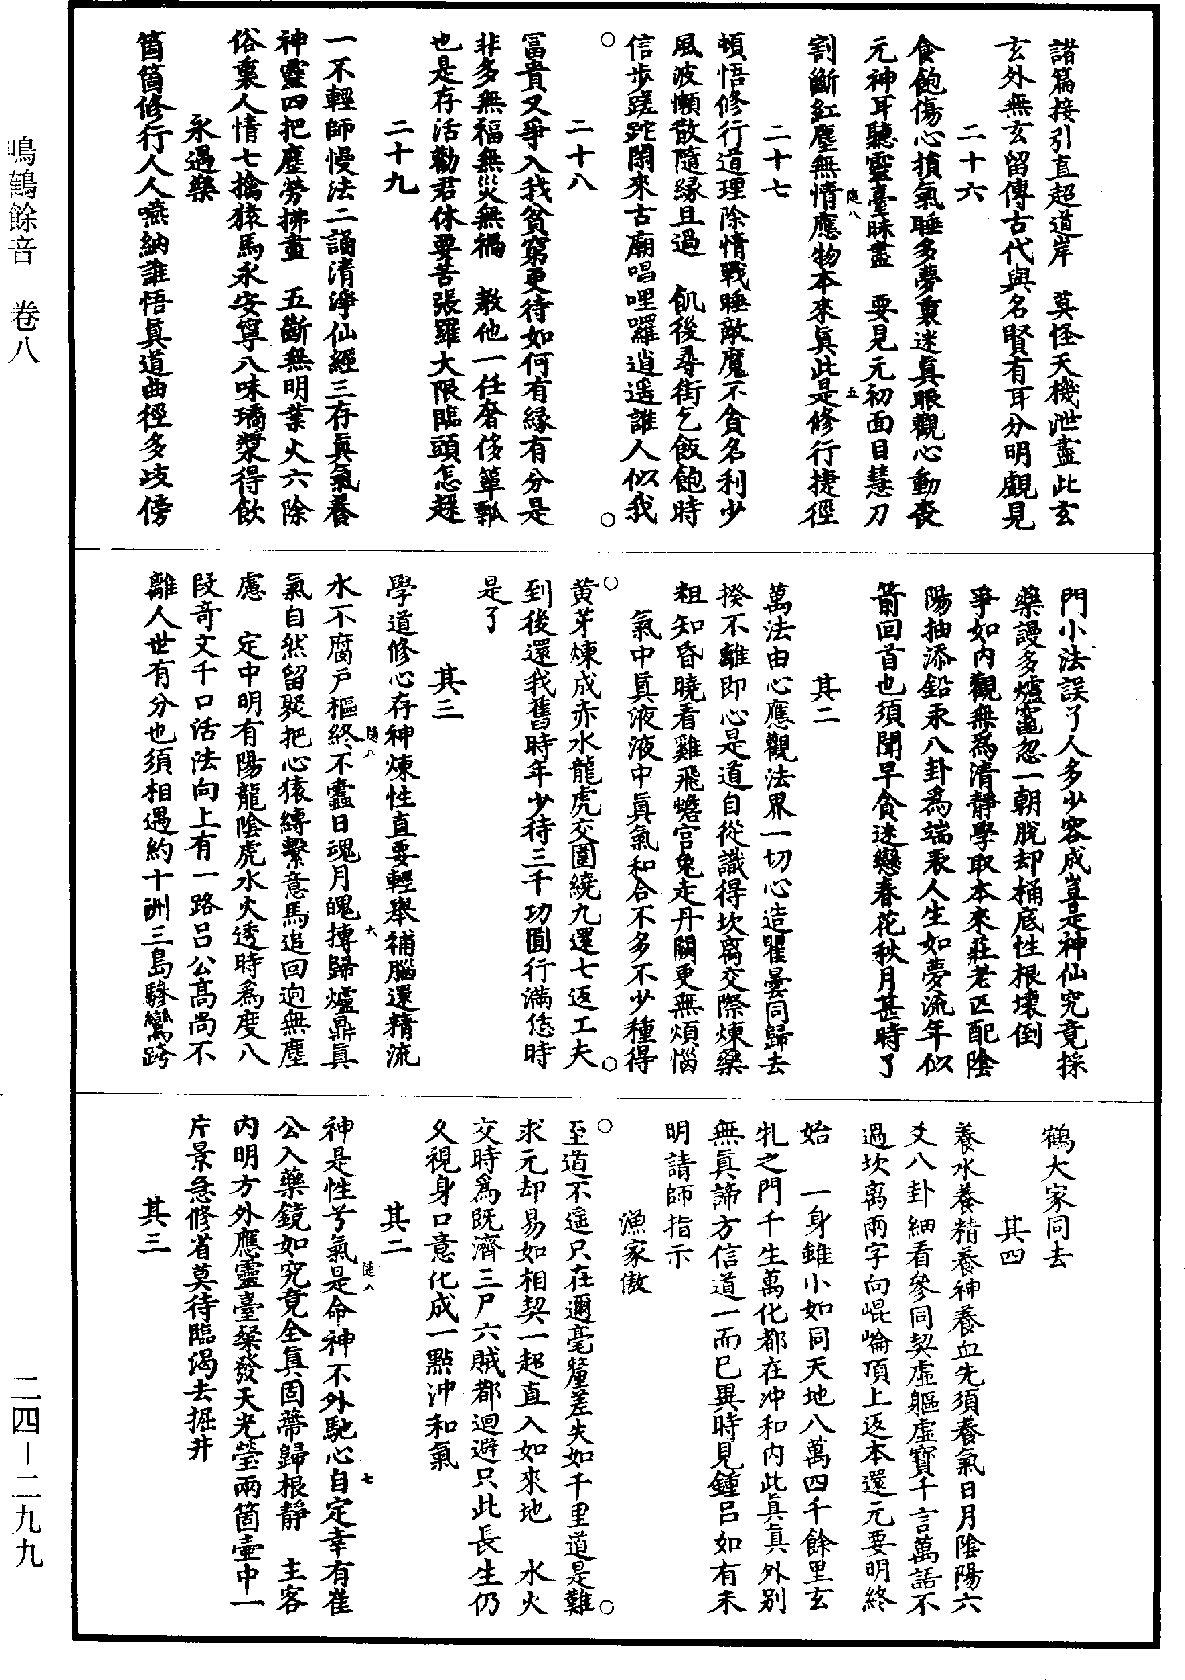 諸篇接引直超道岸　莫怪天機泄盡此玄
玄外無玄留傳古代與名賢有耳分明覷見
二十六
食飽傷心損氣睡多夢裏迷真眼觀心動喪
元神耳聽靈臺昧盡　要見元初面目慧刀
割斷紅塵無情應物本來真此是修行捷徑
二十七
頓悟修行道理除情戰睡敵魔不貪名利少
風波懶散隨緣且過　飢後尋街乞飯飽時
信步蹉跎閑來古廟唱哩囉逍遥誰人似我
二十八
富貴又爭入我貧窮更待如何有緣有分是
非多無福無災無禍　教他一任奢侈簞瓢
也是存活勸君休要苦張羅大限臨頭怎趓
二十九
一不輕師慢法二誦清淨仙經三存真氣養
神靈四把塵勞拂盡　五斷無明業火六除
俗裏人情七擒猿馬永安寧八味瓊漿得飲
永遇樂
箇箇修行人人嚥納誰悟真道曲徑多歧傍
門小法誤了人多少容成豈是神仙究竟採
藥謾多爐竈忽一朝脫却桶底性根壞倒
爭如內觀無為清靜學取本來莊老匹配陰
陽抽添鉛汞八卦為端表人生如夢流年似
箭回首也須聞早貪迷戀春花秋月甚時了
其二
萬法由心應觀法界一切心造瞿曇同歸去
揆不離即心是道自從識得坎离交際煉藥
粗知昏曉看雞飛蟾宮兔走丹闕更無煩惱
氣中真液液中真氣和合不多不少種得
黃芽煉成赤水龍虎交圍繞九還七返工夫
到後還我舊時年少待三千功圓行滿恁時
是了
其三
學道修心存神煉性直要輕舉補腦還精流
水不腐戶樞終不蠹日魂月魄摶歸爐鼎真
氣自然留聚把心猿縛繫意馬追回迥無塵
慮　定中明有陽龍陰虎水火透時為度八
段奇文千口活法向上有一路呂公高尚不
離人世有分也須相遇約十洲三島驂鸞跨
鶴大家同去
其四
養水養精養神養血先須養氣日月陰陽六
爻八卦細看參同契虛軀虛寶千言萬語不
過坎离兩字向崐崘頂上返本還元要明終
始　一身雖小如同天地八萬四千餘里玄
牝之門千生萬化都在沖和內此真真外別
無真諦方信道一而已異時見鍾呂如有未
明請師指示
漁家傲
至道不遥只在邇毫釐差失如千里道是難
求元却易如相契一超直入如來地　水火
交時為既濟三尸六賊都迴避只此長生仍
久視身口意化成一點沖和氣
其二
神是性兮氣是命神不外馳心自定幸有崔
公入藥鏡如究竟全真固蔕歸根靜　主客
內明方外應靈臺粲發天光瑩兩箇壷中一
片景急修省莫待臨渴去掘井
其三
隨八
五
隨八
六
隨八
七
鳴鶴餘音　卷八
二四－二九九